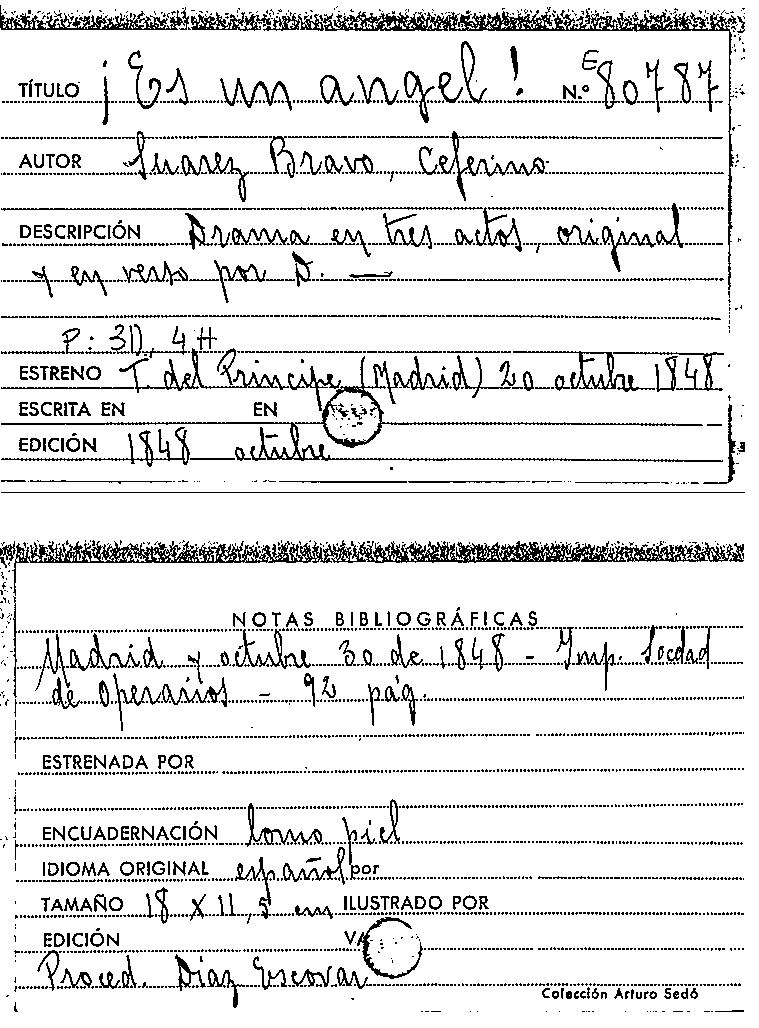 TÍTULO ¡Es un angel! N.º E 80787
AUTOR Suarez Bravo, Ceferino
DESCRIPCIÓN Drama en tres actos, original
y en verso por D. —
P: 3D, 4H
ESTRENO T. del Principe (Madrid) 20 octubre 1848
ESCRITA EN EN
EDICIÓN 1848 octubre
NOTAS BIBLIOGRÁFICAS
Madrid y octubre 30 de 1848 - Imp. Socdad
de Operarios - 92 pág.
ESTRENADA POR
ENCUADERNACIÓN lomo piel
IDIOMA ORIGINAL español por
TAMAÑO 18 x 11,5 cm ILUSTRADO POR
EDICIÓN
Proced. Diaz Escovar
Colección Arturo Sedó